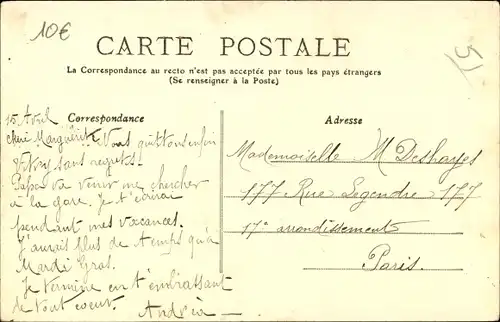 10€
CARTE POSTALE
La Correspondance au recto n'est pas acceptée par tous les pays étrangers
(Se renseigner à la Poste)
Correspondance
Adresse
15 Avril
chère Marguerite Nous quittons enfin
sans regrets!
Papa va venir me chercher
à la gare. Je t'écrirai
pendant mes vacances.
J'aurais plus de temps qu'à
Mardi Gras.
Je termine en t'embrassant
de tout coeur.
Mademoiselle M Deshayes
177 Rue Legendre 177
17e arrondissement
Paris.